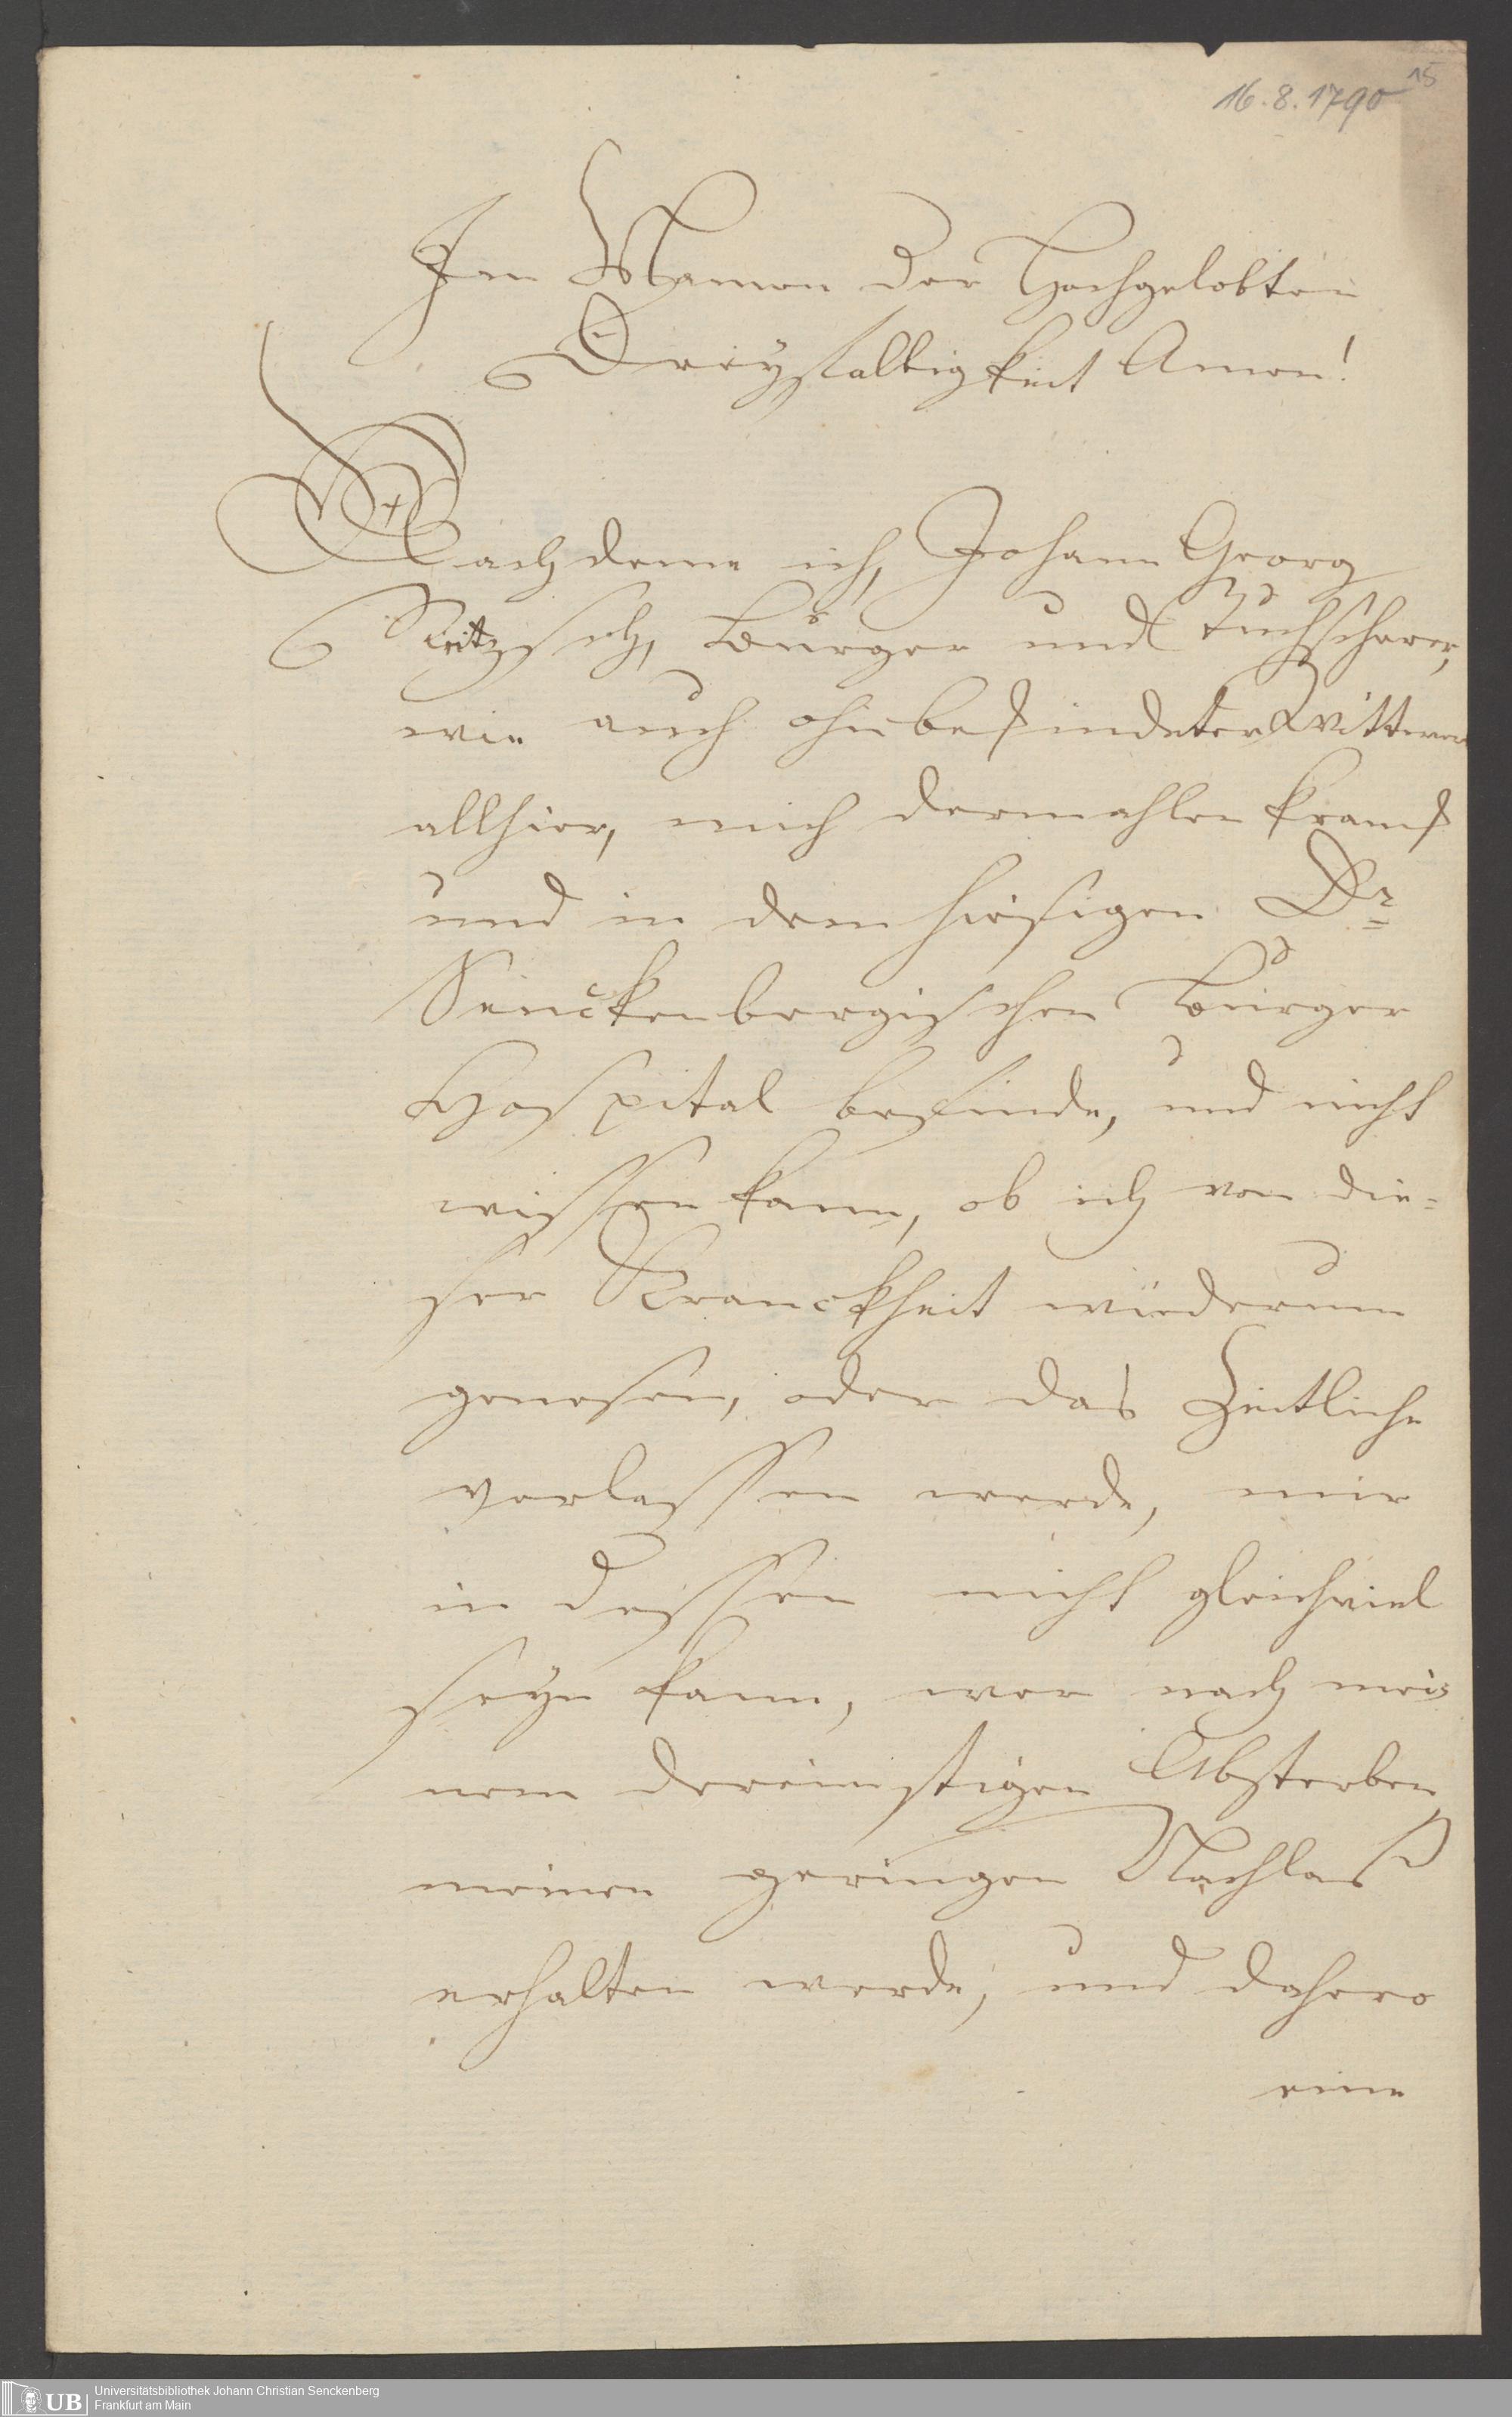 16.8.1790
15
Im Namen der Hochgelobten
Dreyfaltigkeit Amen!
Nachdeme ich, Johann Georg
Burger und Tuchscherer,
wie auch ohnbekindeter Wittwer
allhier, mich dermahlen kranck
und in dem hiesigen Dr.
Senckenbergischen Burger
Hospital befinde, und nicht
wissen kann, ob ich von die=
ser Kranckheit wiederum
genesen, oder das Zeitliche
verlassen werde, mir
in dessen nicht gleichviel
seyn kann, wer nach mei=
nem dereinstigen Absterben
meinen geringen Nachlaß
erhalten werde, und dahero
eine
UB
Universitätsbibliothek Johann Christian Senckenberg
Frankfurt am Main